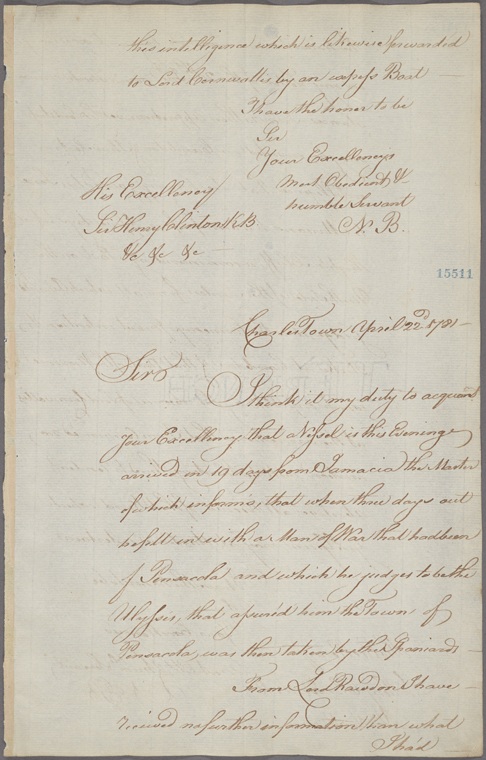 this intelligence which is likewise forwarded
to Lord Cornwallis by an express Boat
I have the honor to be
Sir
Your Excellency's
Most Obedient &
humble Servant
N. B.
His Excellency
Sir Henry Clinton K.B.
&c &c &c
15511
Charles Town April 22d 1781
Sir
I think it my duty to acquaint
Your Excellency that a Vessel is this Evening
arrived in 19 days from Jamacia the Master
of which informs, that when three days out
he fell in with a Man of War that had been
of Pensacola and which he judges to be the
Ulysses, that assured him the Town of
Pensacola was then taken by the Spaniards
From Lord Rawdon I have
received no further information than what
I had